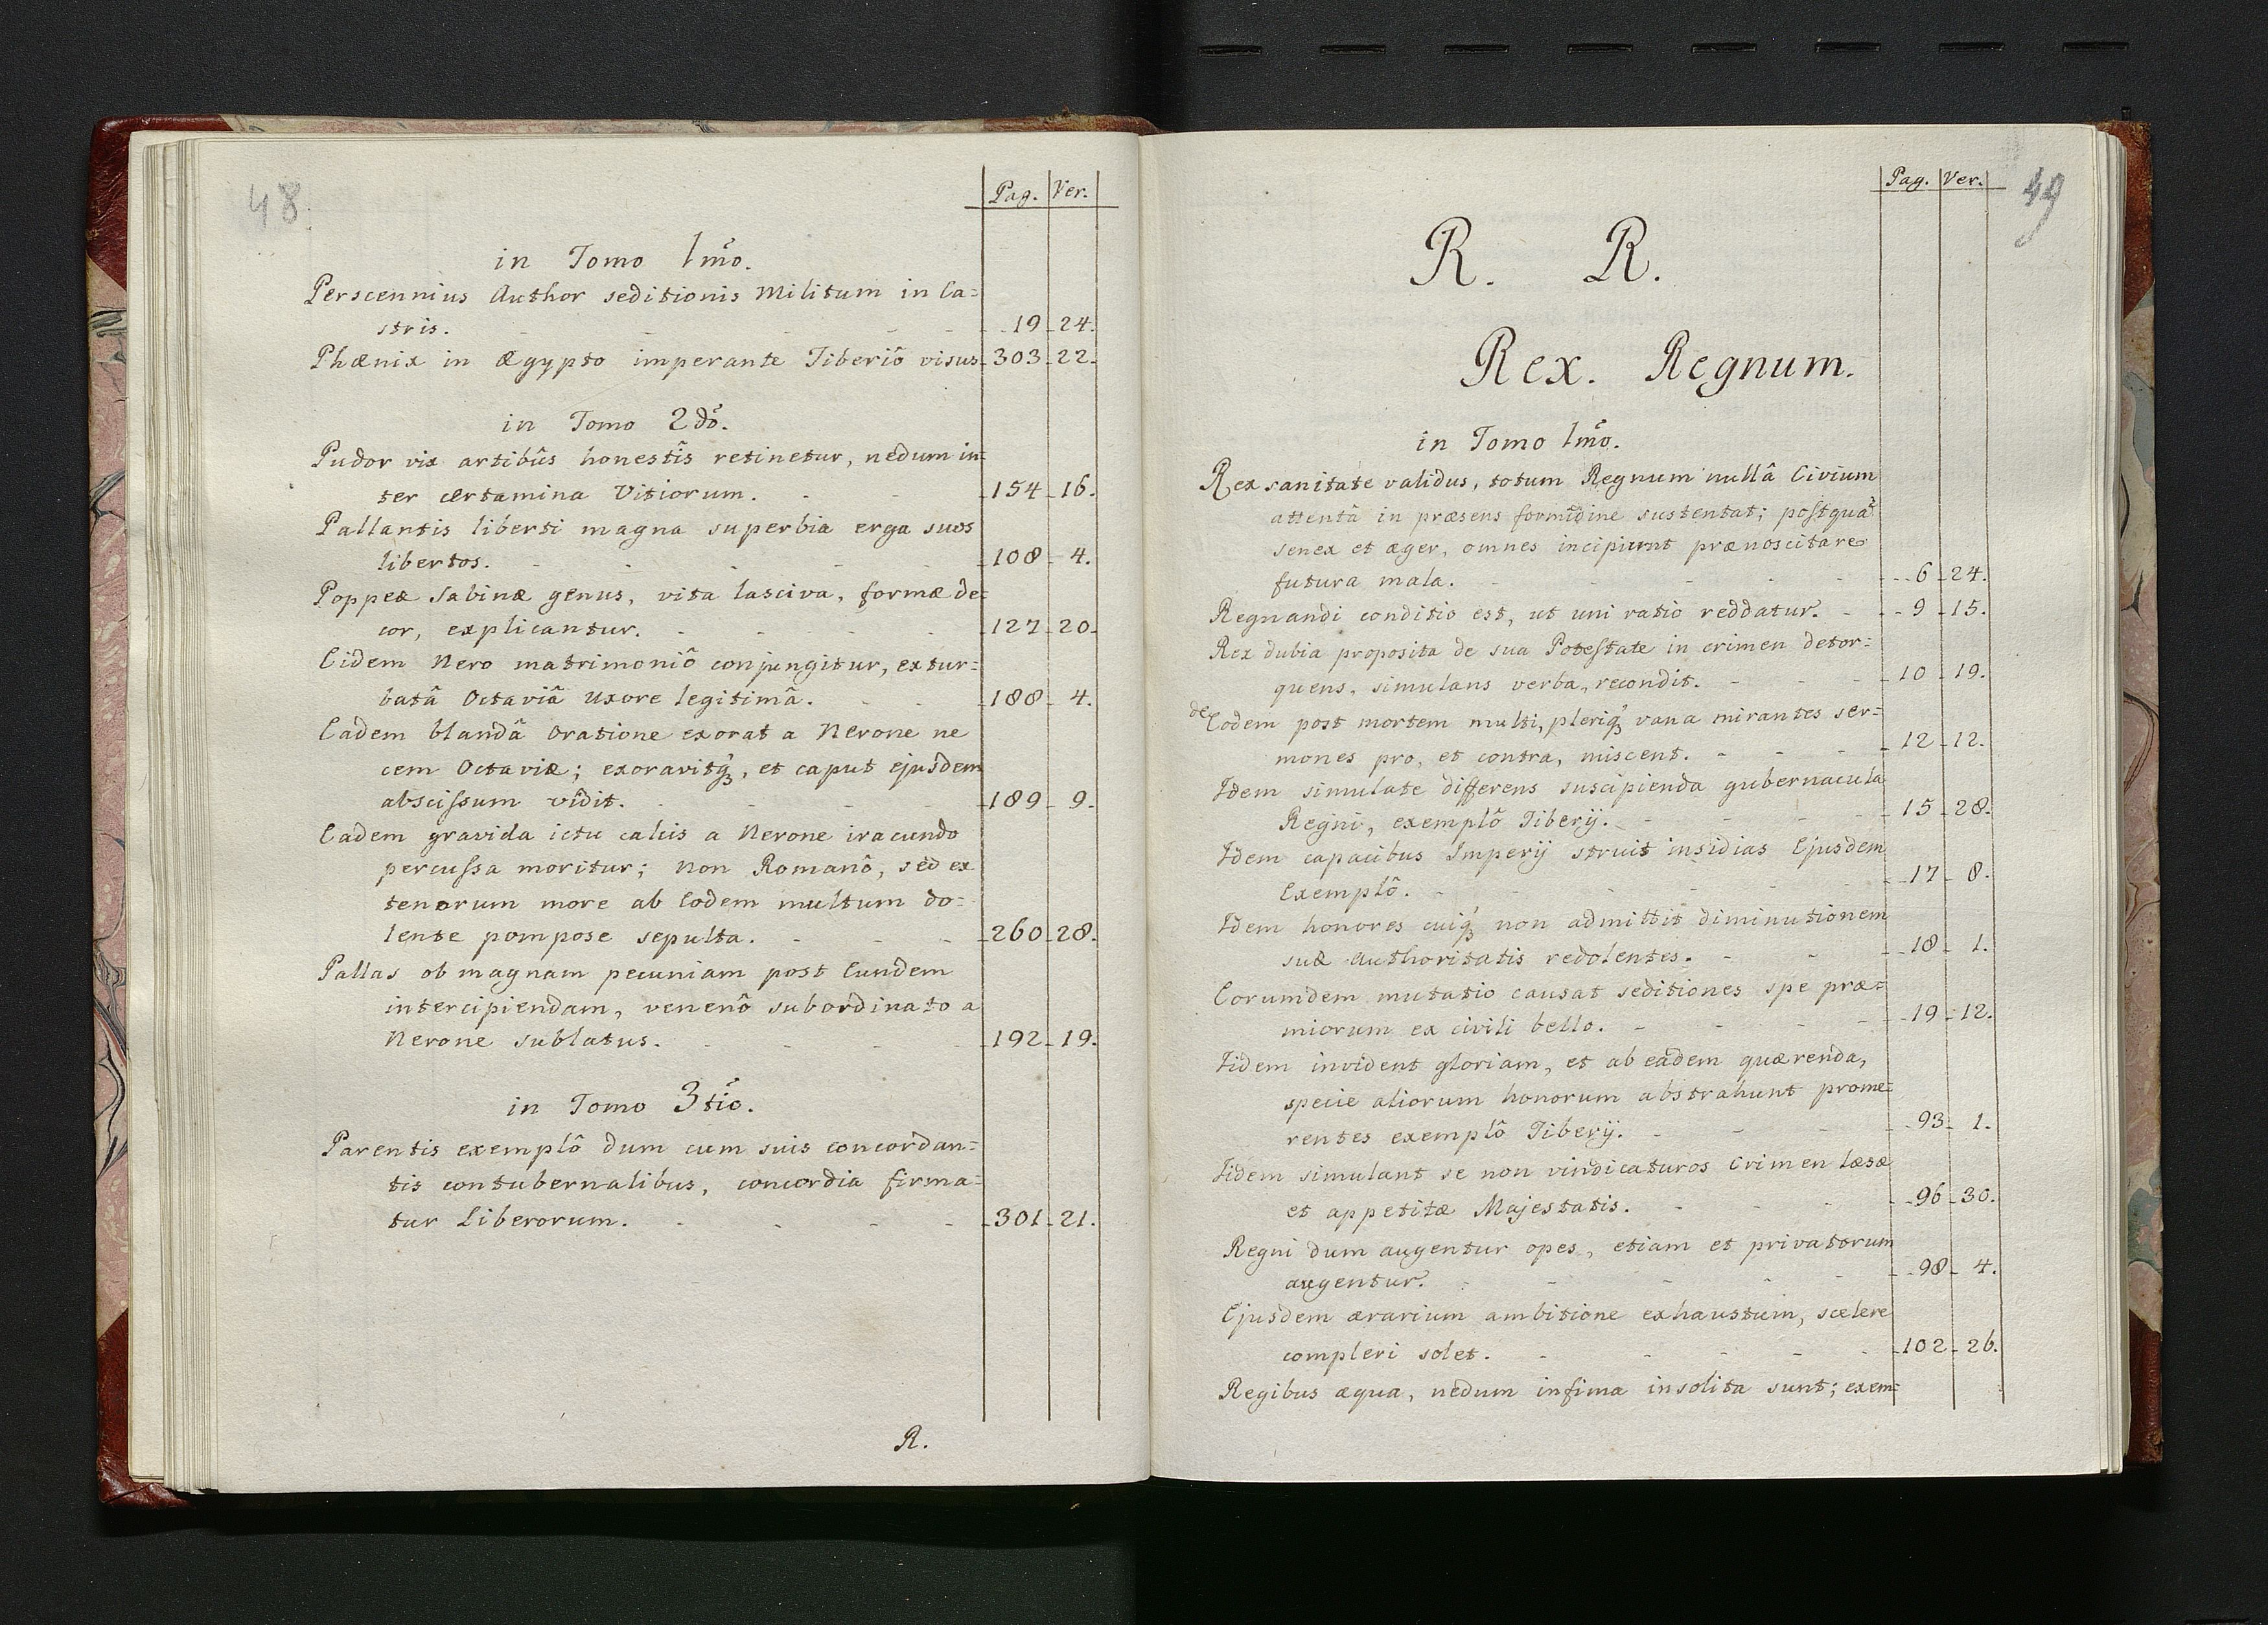 48
Pag. Ver.
in Tomo 1mo.
Perscennius Author seditionis Militum in Ca=
stris. 19 24.
Phænix in Ægypto imperante Tiberiô visus 303 22.
in Tomo 2do.
Pudor vix artibûs honestîs retinetur, nedum in=
ter certamina Vitiorum. 154 16.
Pallantis liberti magna superbia erga suos
libertos. 108 4.
Poppeæ Sabinæ genus, vita lasciva, formæ de=
cor, explicantur. 127 20.
Eidem Nero matrimoniô conjungitur, extur=
batâ Octaviâ Uxore legitimâ. 188 4.
Eadem blandâ Oratione exorat a Nerone ne
cem Octaviæ; exoravitq́ꝫ, et caput ejusdem
abscißum vîdit. 189 9.
Eadem gravida ictu calcis a Nerone iracundo
percußa moritur; Non Romanô, sed ex
tenorum more ab Eodem multum do=
lente pompose sepulta. 260 28.
Pallas ob magnam pecuniam post Eundem
intercipiendam, venenô subordinato a
Nerone sublatus. 192 19.
in Tomo 3tio.
Parentis exemplô dum cum suis concordan=
tis contubernalibus, concordia firma=
tur Liberorum. 301 21.
R.
Pag. Ver.
49
R. R.
Rex. Regnum.
in Tomo 1mo.
Rex sanitate validus, totum Regnum nullâ Civium
attentâ in præsens formidine sustentat; postquã
senex et æger, omnes incipiunt prænoscitare
futura mala. 6 24.
Regnandi conditio est, ut uni ratio reddatur. 9 15.
Rex dubia proposita de sua Potestate in crimen detor=
quens, simulans verba, recondit. 10 19.
de Eodem post mortem multi, pleriq́ꝫ vana mirantes ser=
mones pro, et contra, miscent. 12 12.
Idem simulate differens suscipienda gubernacula
Regni, exemplô Tiberij. 15 28.
Idem capacibus Imperij struit insidias Ejusdem
Exemplô. 17 8.
Idem honores cuiq́ꝫ non admittit diminutionem
suæ Authoritatis redolentes. 18 1.
Eorumdem mutatio causat seditiones spe præ=
miorum ex civili bello. 19 12.
Iidem invident gloriam, et ab eâdem quærenda,
specie aliorum honorum abstrahunt prome=
rentes exemplô Tiberij. 93 1.
Iidem simulant se non vindicaturos Crimen læsæ
et appetitæ Majestatis. 96 30.
Regni dum augentur opes, etiam et privatorum
augentur. 98 4.
Ejusdem ærarium ambitione exhaustum, scelere
compleri solet. 102 26.
Regibus æqua, nedum infima insolita sunt; exem=